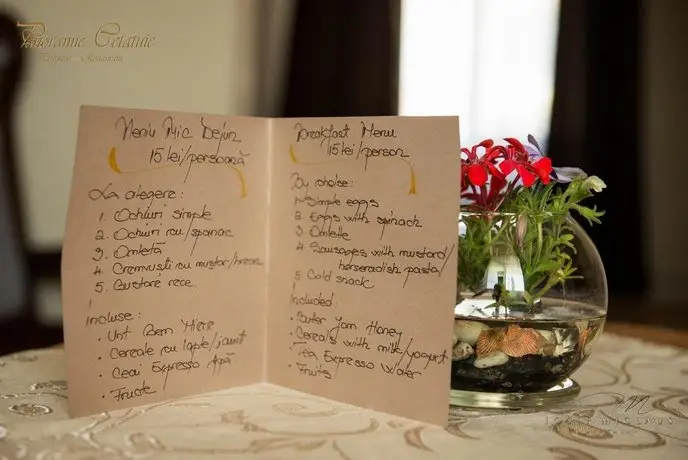 Panoramic Cetatuie
Meniu Mic Dejun
15 lei/persoană
La alegere:
1. Ochiuri simple
2. Ochiuri cu/spanac
3. Omletă
4. Cremvusti cu mustar/hrean
5. Gustare rece
Incluse:
• Unt Gem Miere
• Cereale cu lapte/iaurt
• Ceai Espresso Apă
• Fructe
Breakfast Menu
15 lei/person
By choise:
1. Simple eggs
2. Eggs with spinach
3. Omlette
4. Sausages with mustard/
horseradish pasta/
5. Cold snack
Included:
• Buter Jam Honey
• Cereals with milk/yogurt
• Tea Expresso Water
• Fruits